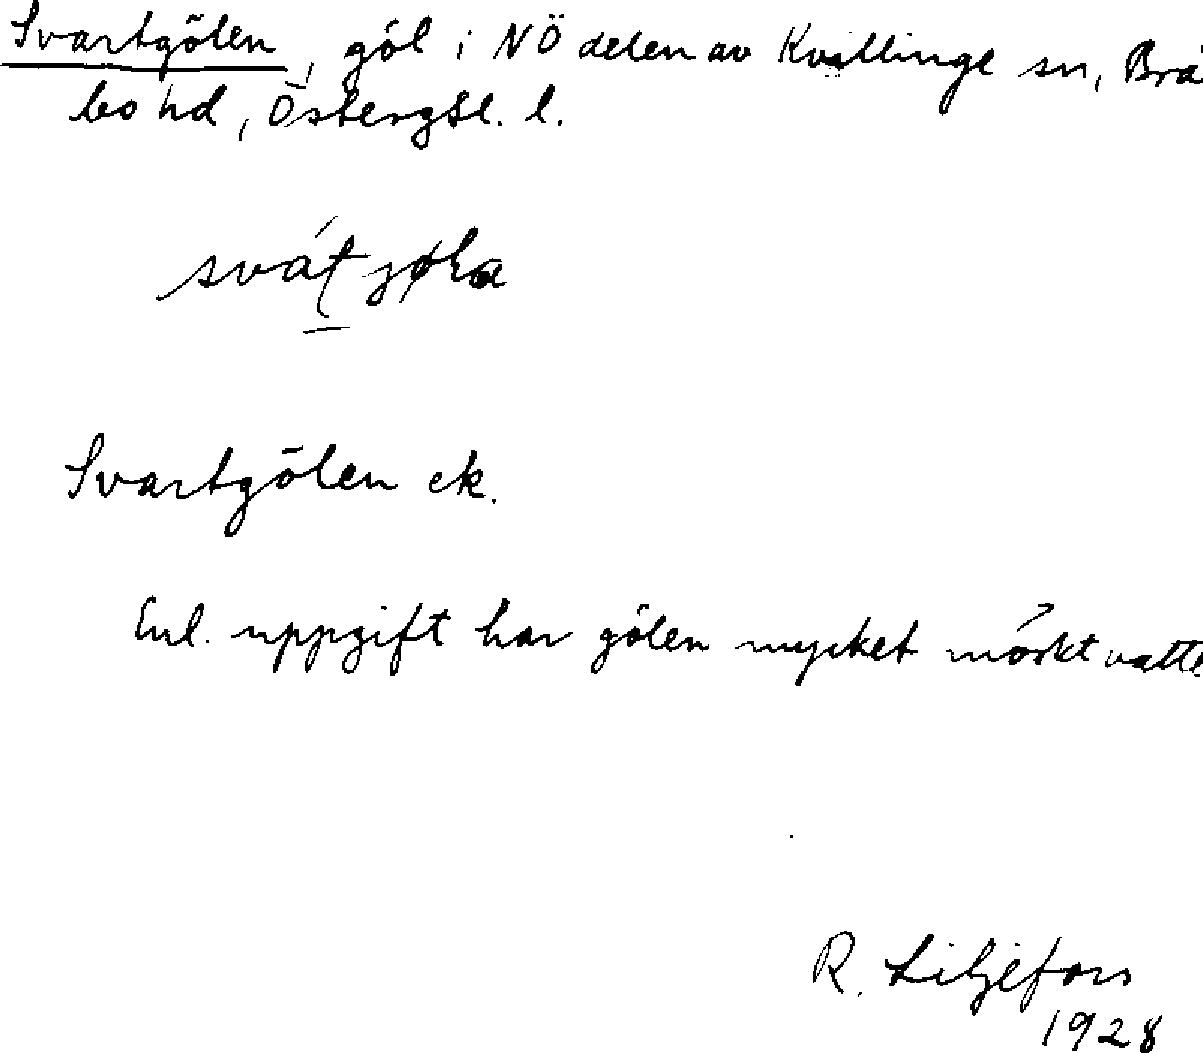 Svartgölen, göl i NÖ delen av Kvillinge sn, Brå
bo hd, Östergtl. l.
Svartgölen ek.
Enl. uppgift har gölen mycket mörkt vatte
R. Liljefors
1928